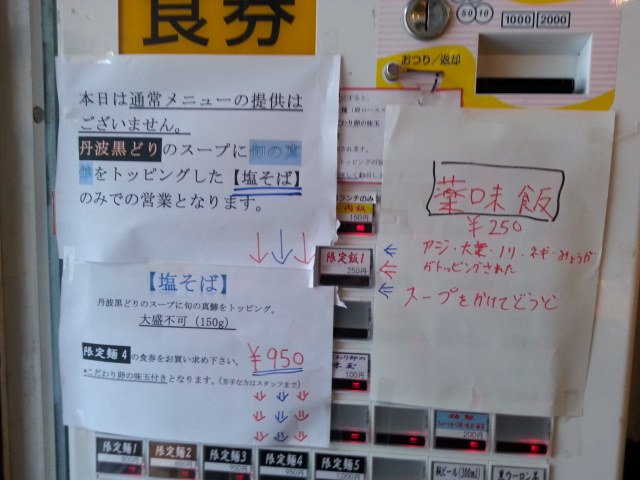 食券
50 10
1000 2000
おつり/返却
本日は通常メニューの提供は
ございません。
丹波黒どりのスープに旬の真
鯵をトッピングした【塩そば】
のみでの営業となります。
【塩そば】
丹波黒どりのスープに旬の真鯵をトッピング。
大盛不可(150g)
限定麺4の食券をお買い求め下さい。
¥950
*こだわり卵の味玉付きとなります。(苦手な方はスタッフまで)
薬味飯
¥250
アジ・大葉・ノリ・ネギ・みょうが
がトッピングされた
スープをかけてどうぞ
ランチのみ
150円
限定飯1
250円
100円
200円
限定麺1
限定麺2
限定麺3
900円
限定麺4
950円
限定麺5
1000円
瓶ビール(300ml)
黒ウーロン茶